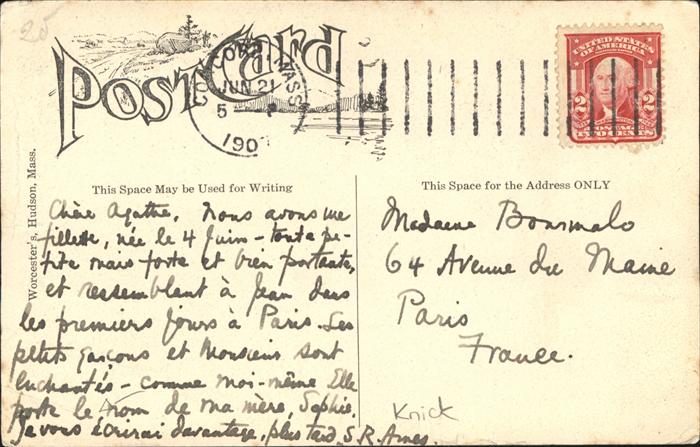 25
POST CARD
CONCORD, MASS.
JUN 21
5 P
190
UNITED STATES OF AMERICA
2 2
POSTAGE
TWO CENTS
This Space May be Used for Writing
This Space for the Address ONLY
Worcester's, Hudson, Mass.
Chère Agathe, Nous avons une
fillette, née le 4 Juin - toute pe-
tite mais forte et bien portante,
et ressemblant à Jean dans
les premiers jours à Paris. Les
petits garçons et Monsieur sont
enchantés - comme moi-même Elle
porte le nom de ma mère, Sophie.
Je vous écrirai davantage, plus tard. S. R. Ames.
Madame Bonsmalo
64 Avenue du Maine
Paris
France.
Knick